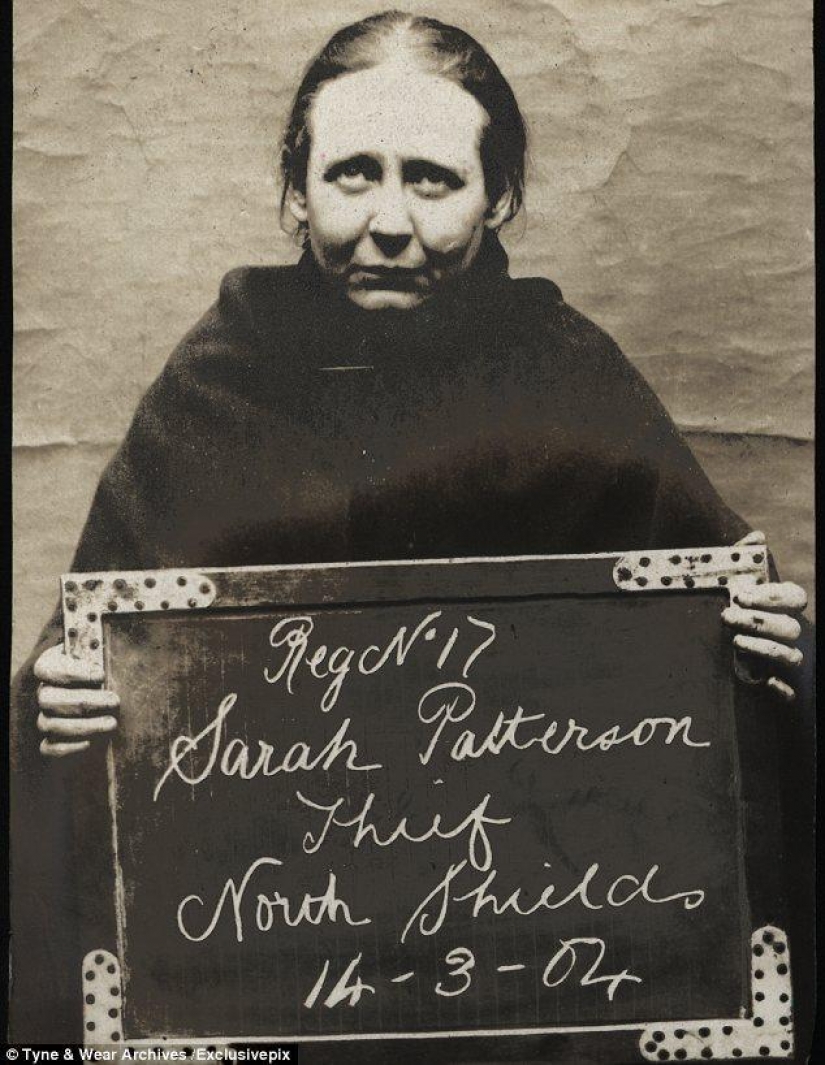 Reg No 17
Sarah Patterson
Thief
North Shields
14-3-04
© Tyne & Wear Archives /Exclusivepix